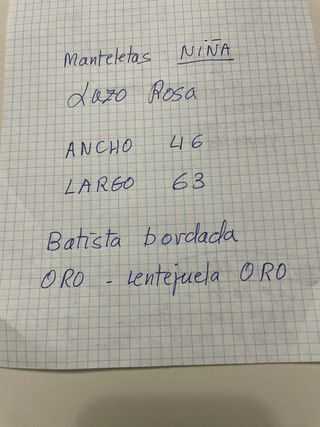 Manteletas NIÑA
Lazo Rosa
ANCHO 46
LARGO 63
Batista bordada
ORO - Lentejuela ORO